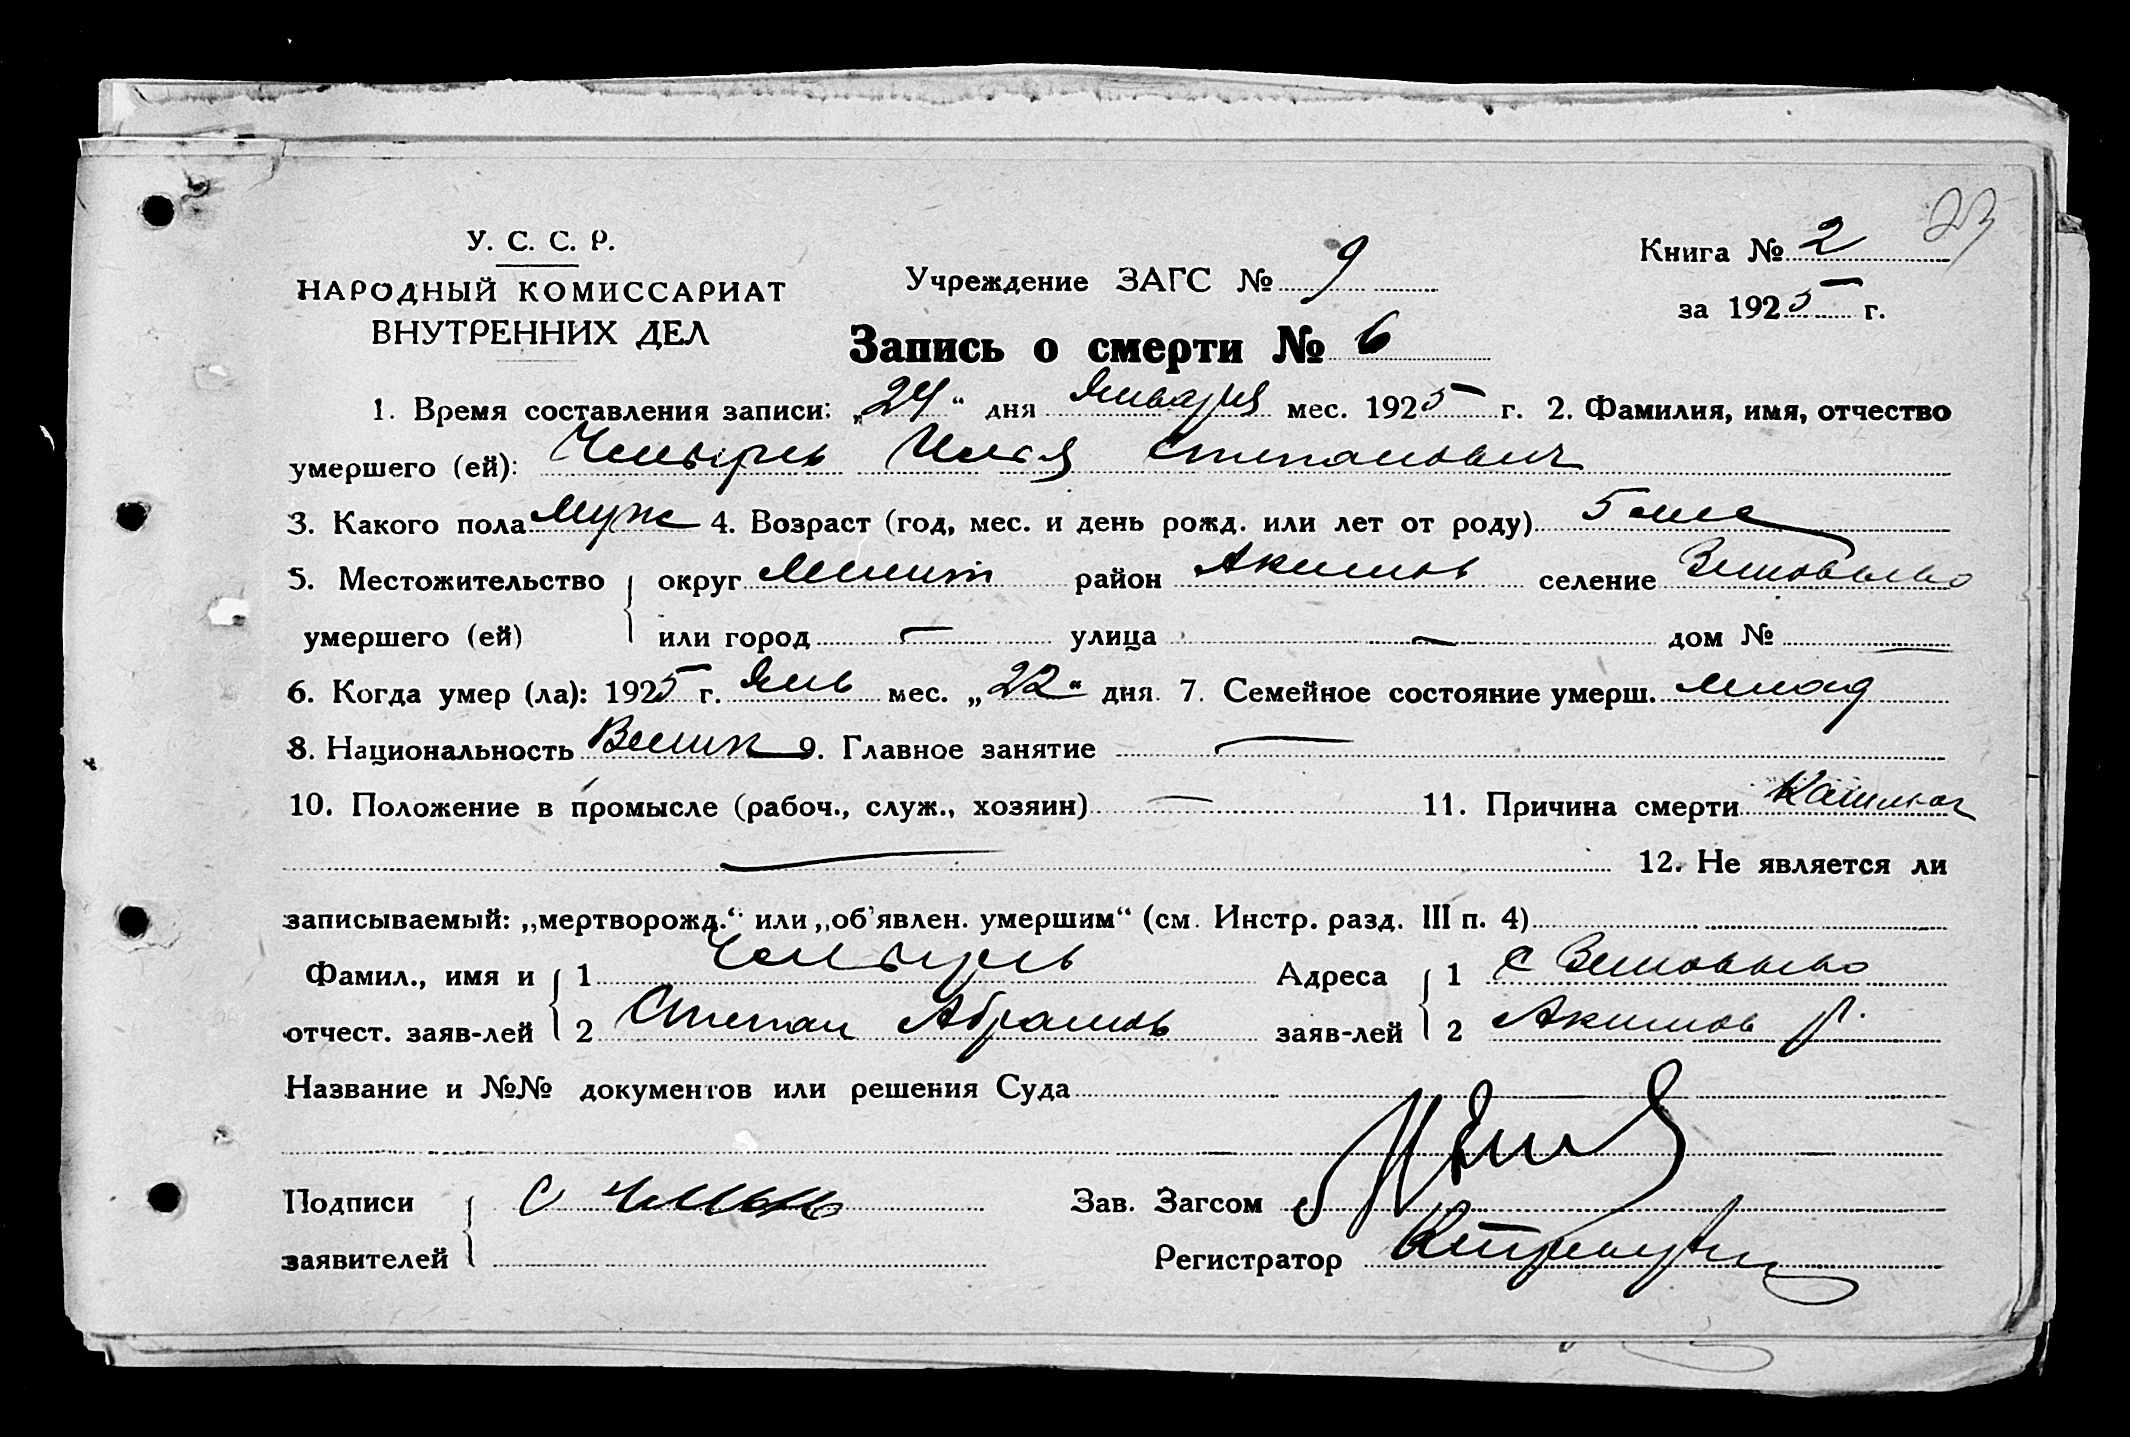 23
У. С. С. Р.
НАРОДНЫЙ КОМИССАРИАТ
ВНУТРЕННИХ ДЕЛ
Учреждение ЗАГС № 9
Книга № 2
за 1925 г.
Запись о смерти № 6
1. Время составления записи: „24“ дня Января мес. 1925 г. 2. Фамилия, имя, отчество
умершего (ей): Илья Степанович
3. Какого пола муж 4. Возраст (год, мес. и день рожд. или лет от роду) 5 мес
5. Местожительство округ Мелит район Акимов селение
умершего (ей) или город — улица — дом № —
6. Когда умер (ла): 1925 г. Янв мес. „22“ дня 7. Семейное состояние умерш. млад
8. Национальность 9. Главное занятие —
10. Положение в промысле (рабоч., служ., хозяин) — 11. Причина смерти
— 12. Не является ли
записываемый: „мертворожд.“ или „об'явлен. умершим“ (см. Инстр. разд. III п. 4)
Фамил., имя и 1 Адреса 1 с
отчест. заяв-лей 2 Степан Абрамов заяв-лей 2 Акимов р.
Название и №№ документов или решения Суда
Подписи С Зав. Загсом
заявителей Регистратор